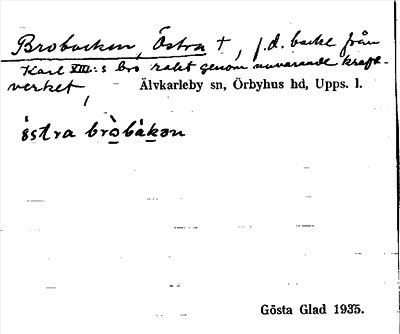 Brobacken, Östra †, f.d. backe från
Karl XIII:s bro rakt genom nuvarande kraft-
verket, Älvkarleby sn, Örbyhus hd, Upps. l.
östra bròbàkən
Gösta Glad 1935.